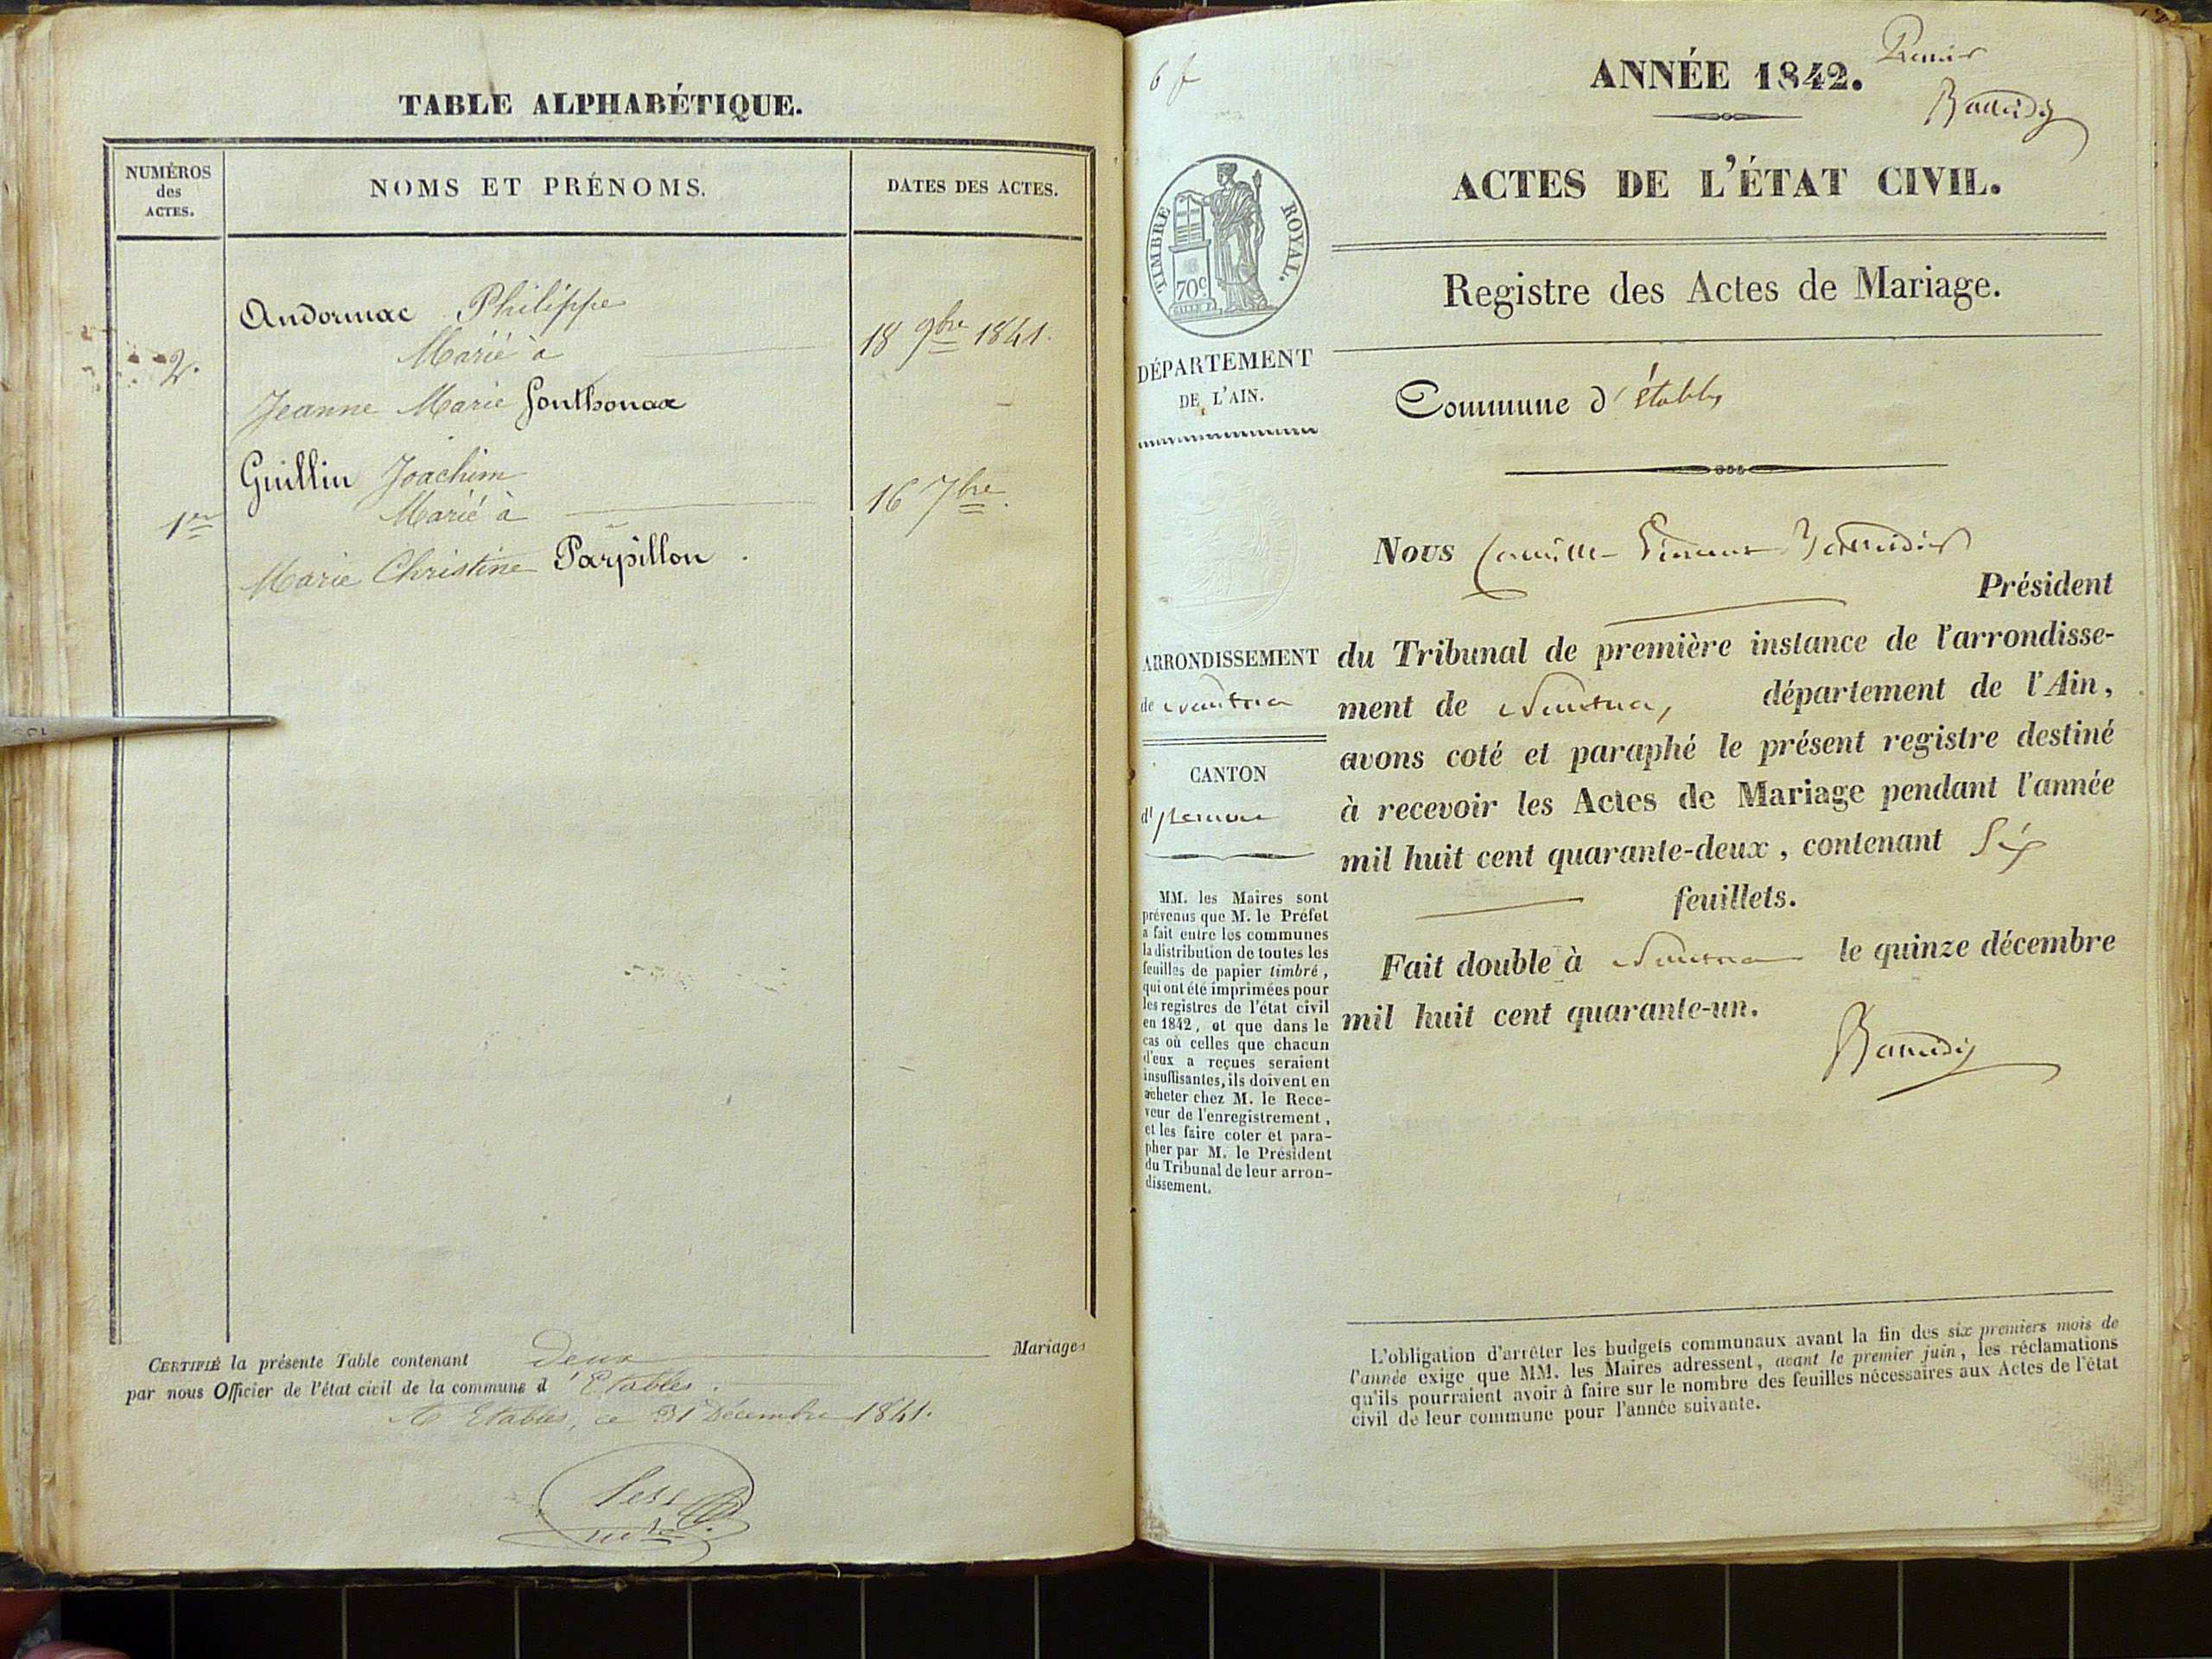 TABLE ALPHABÉTIQUE.
NUMÉROS
des
ACTES.
NOMS ET PRÉNOMS.
DATES DES ACTES.
Andormac Philippe
2.
Marié à
18 9bre 1841.
Jeanne Marie Gonthonax
Guillin Joachim
1er
Marié à
16 7bre.
Marie Christine Parpillon.
CERTIFIÉ la présente Table contenant deux Mariages
par nous Officier de l'état civil de la commune d'Etables.
A Etables, ce 31 Décembre 1841.
6 f
ANNÉE 1842.
Premier
ACTES DE L'ÉTAT CIVIL.
TIMBRE ROYAL.
70c
Registre des Actes de Mariage.
DÉPARTEMENT
DE L'AIN.
Commune d'étables
Nous Camille
Président
ARRONDISSEMENT
de nantua
du Tribunal de première instance de l'arrondisse-
ment de Nantua, département de l'Ain,
avons coté et paraphé le présent registre destiné
à recevoir les Actes de Mariage pendant l'année
mil huit cent quarante-deux, contenant Six
feuillets.
Fait double à Nantua le quinze décembre
mil huit cent quarante-un.
CANTON
d'
MM. les Maires sont
prévenus que M. le Préfet
a fait entre les communes
la distribution de toutes les
feuilles de papier timbré,
qui ont été imprimées pour
les registres de l'état civil
en 1842, et que dans le
cas où celles que chacun
d'eux a reçues seraient
insuffisantes, ils doivent en
acheter chez M. le Rece-
veur de l'enregistrement,
et les faire coter et para-
pher par M. le Président
du Tribunal de leur arron-
dissement.
L'obligation d'arrêter les budgets communaux avant la fin des six premiers mois de
l'année exige que MM. les Maires adressent, avant le premier juin, les réclamations
qu'ils pourraient avoir à faire sur le nombre des feuilles nécessaires aux Actes de l'état
civil de leur commune pour l'année suivante.